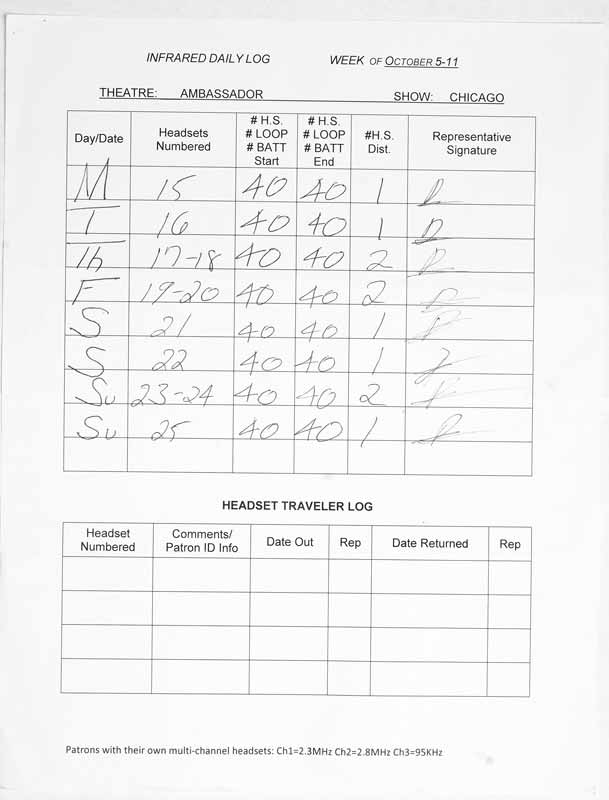 INFRARED DAILY LOG WEEK OF OCTOBER 5-11
THEATRE: AMBASSADOR SHOW: CHICAGO
Day/Date Headsets Numbered # H.S. # LOOP # BATT Start # H.S. # LOOP # BATT End #H.S. Dist. Representative Signature
M 15 40 40 1
T 16 40 40 1
Th 17-18 40 40 2
F 19-20 40 40 2
S 21 40 40 1
S 22 40 40 1
Su 23-24 40 40 2
Su 25 40 40 1
HEADSET TRAVELER LOG
Headset Numbered Comments/ Patron ID Info Date Out Rep Date Returned Rep
Patrons with their own multi-channel headsets: Ch1=2.3MHz Ch2=2.8MHz Ch3=95KHz